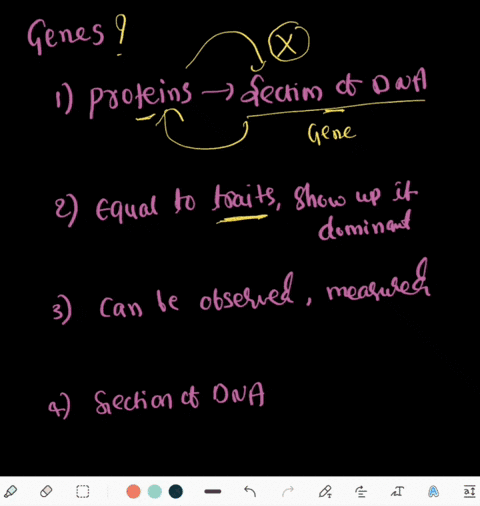 Genes?
X
1) proteins → Section of DNA
Gene
2) Equal to traits, show up if
dominant
3) Can be observed, measured
4) Section of DNA